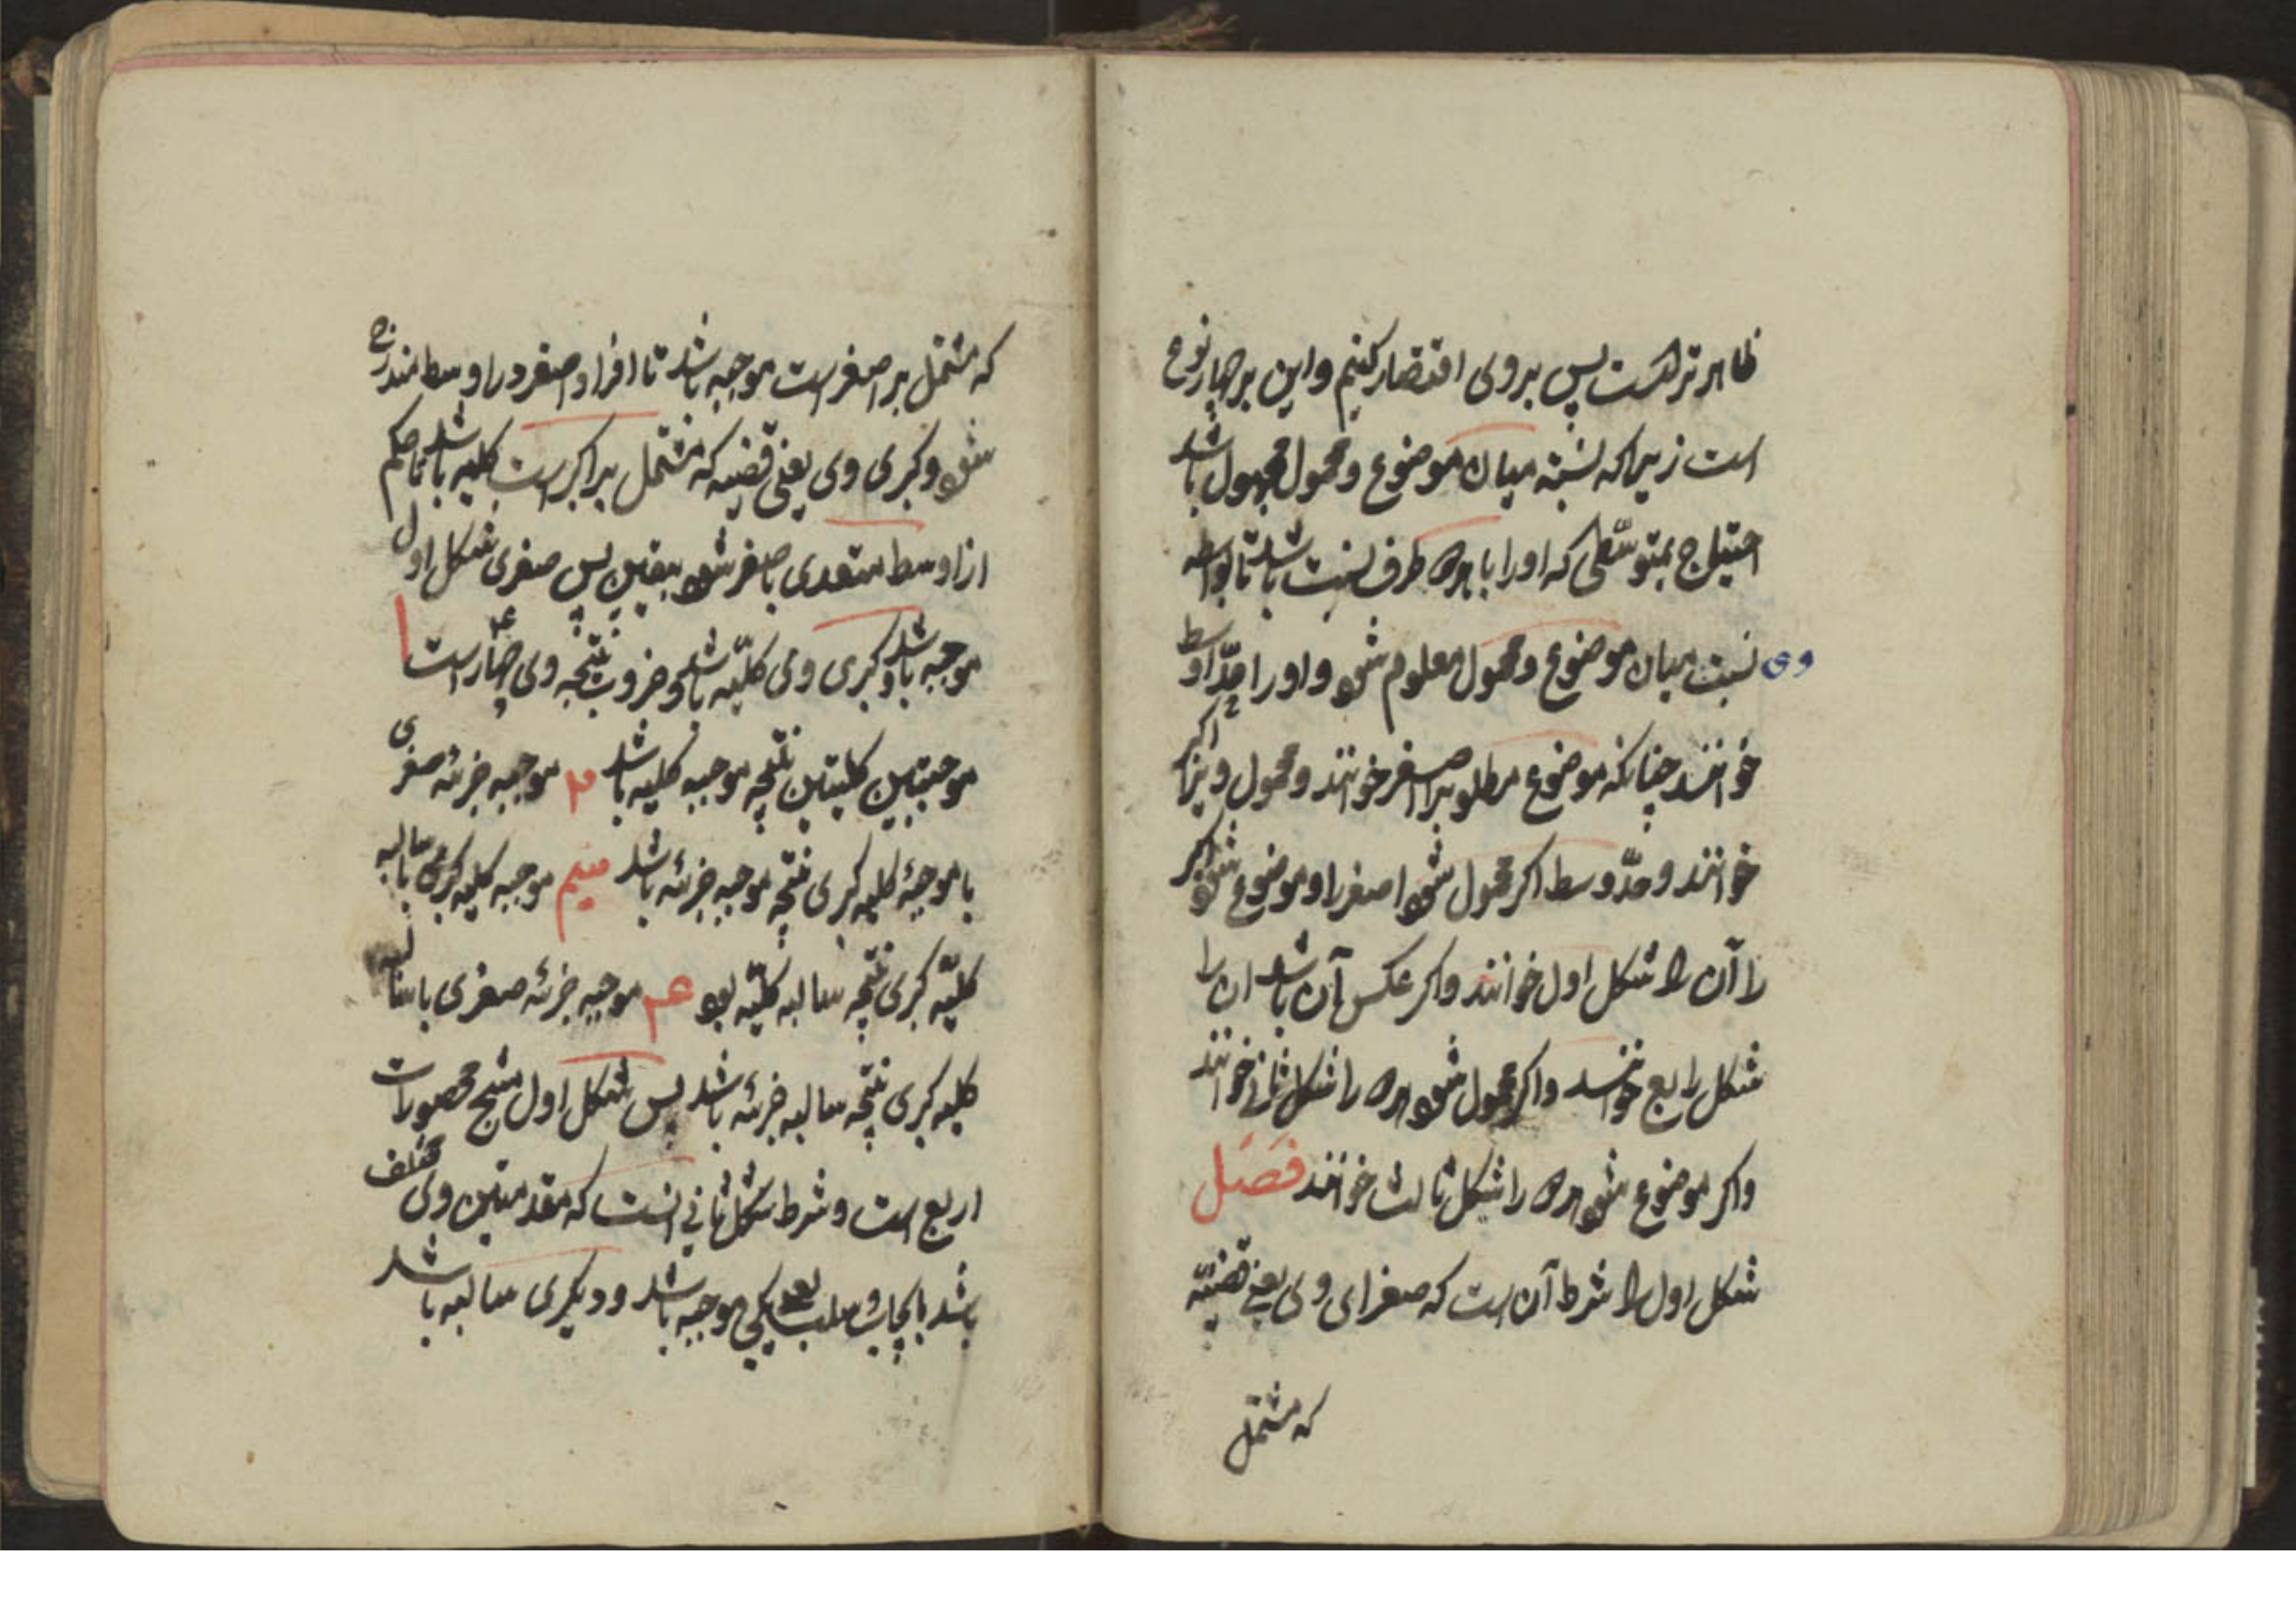 ظاهرترست پس بروی اقتصار کنیم واین بر چهار نوع
است زیرا که نسبة میان موضوع ومحمول مجهول باشد
احتیاج بمتوسّطی که اورا با هر دو طرف نسبت باشد تا بواسطه
وی نسبت میان موضوع ومحمول معلوم شود واورا حدّ اوسط
خوانند چنانکه موضوع مطلوبرا اصغر خوانند ومحمول ویرا اکبر
خوانند وحدّ وسط اکر محمول شود اصغررا وموضوع شود اکبر
را آن را شکل اول خوانند واکر عکس آن باشد ان را
شکل رابع خوانند واکر محمول شود هر دو را شکل ثانی خوانند
واکر موضوع شود هر دو را شکل ثالث خوانند فصل
شکل اول را شرط آن است که صغرای وی یعنی قضیّه
که مشتمل
که مشتمل بر اصغر است موجبه باشد تا افراد اصغر در اوسط مندرج
شود وکبری وی یعنی قضیه که مشتمل بر اکبر است کلیه باشد تا حکم
از اوسط متعدی باصغر شود بیقین پس صغری شکل اول
موجبه باشد وکبری وی کلیّه باشد وضروب منتجه وی چهار است ا
موجبتین کلیتین نتیجه موجبه کلیه باشد ۲ موجبه جزئه صغری
با موجبهٔ کلیه کبری نتیجه موجبه جزئه باشد سیم موجبه کلیه کبری با سالبه
کلیّه کبری نتیجه سالبه کلیّه بود ۴ موجبه جزئه صغری با سالبه
کلیه کبری نتیجه سالبه جزئه باشد پس شکل اول منتج محصورات
اربع است وشرط شکل ثانی انست که مقدمتین وی مختلف
باشد بایجاب وسلب یعنی یکی موجبه باشد ودیکری سالبه باشد